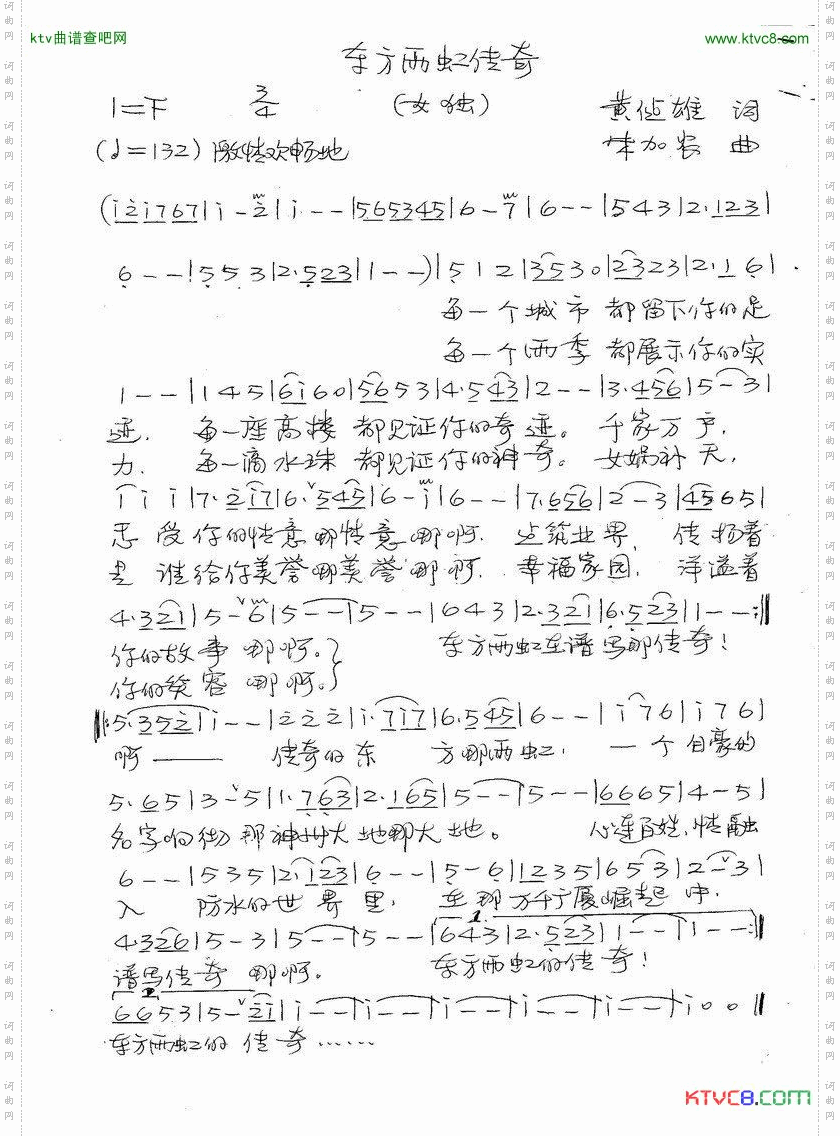 ktv曲谱查吧网
www.ktvc8.com
东方雨虹传奇
1=F 3/4 (女独) 黄 雄 词
(♩=132) 激情欢畅地 加农 曲
(i 2 i 7 6 7 | i - 2 | i - - | 5 6 5 3 4 5 | 6 - 7 | 6 - - | 5 4 3 | 2. 1 2 3 |
6 - - | 5 5 3 | 2. 5 2 3 | 1 - -) | 5 1 2 | 3 5 3 0 | 2 3 2 3 | 2. 1 6 |
每一个城市 都留下你的足
每一个雨季 都展示你的实
1 - - | 1 4 5 | 6 i 6 0 | 5 6 5 3 | 4. 5 4 3 | 2 - - | 3. 4 5 6 | 5 - 3 |
迹. 每一座高楼 都见证你的奇迹。 千家万户,
力. 每一滴水珠 都见证你的神奇。 女娲补天,
i i i | 7. 2 i 7 | 6. 5 4 5 | 6 - i | 6 - - | 7. 6 5 6 | 2 - 3 | 4 5 6 5 |
受你的情意哪情意哪啊. 筑世界, 传扬着
是谁给你美誉哪美誉哪啊. 幸福家园, 洋溢着
4. 3 2 1 | 5 - 6 | 5 - - | 5 - - | 6 4 3 | 2. 3 2 1 | 6. 5 2 3 | 1 - - :‖
你的故事 哪啊。} 东方雨虹在谱写那传奇!
你的笑容 哪啊。}
‖: 5. 3 5 2 | i - - | 2 2 2 | i. 7 i 7 | 6. 5 4 5 | 6 - - | i 7 6 | i 7 6 |
啊—— 传奇的东 方哪雨虹, 一个自豪的
5. 6 5 | 3 - 5 | 1. 7 6 3 | 2. 1 6 5 | 5 - - | 5 - - | 6 6 6 5 | 4 - 5 |
名字响彻那神州大地哪大地。 心连百姓,情融
6 - - | 5 3 5 | 2. 1 2 3 | 6 - - | 5 - 6 | 1 2 3 5 | 6 5 3 | 2 - 3 |
入 防水的世界里, 在那万千广厦崛起中,
1.
4. 3 2 6 | 5 - 3 | 5 - - | 5 - - | 6 4 3 | 2. 5 2 3 | 1 - - | 1 - - :‖
谱写传奇 哪啊。 东方雨虹的传奇!
2.
6 6 5 3 | 5 - 2 i | i - - | i - - | i - - | i - - | i - - | i 0 0 ‖
东方雨虹的 传奇……
KTVC8.COM